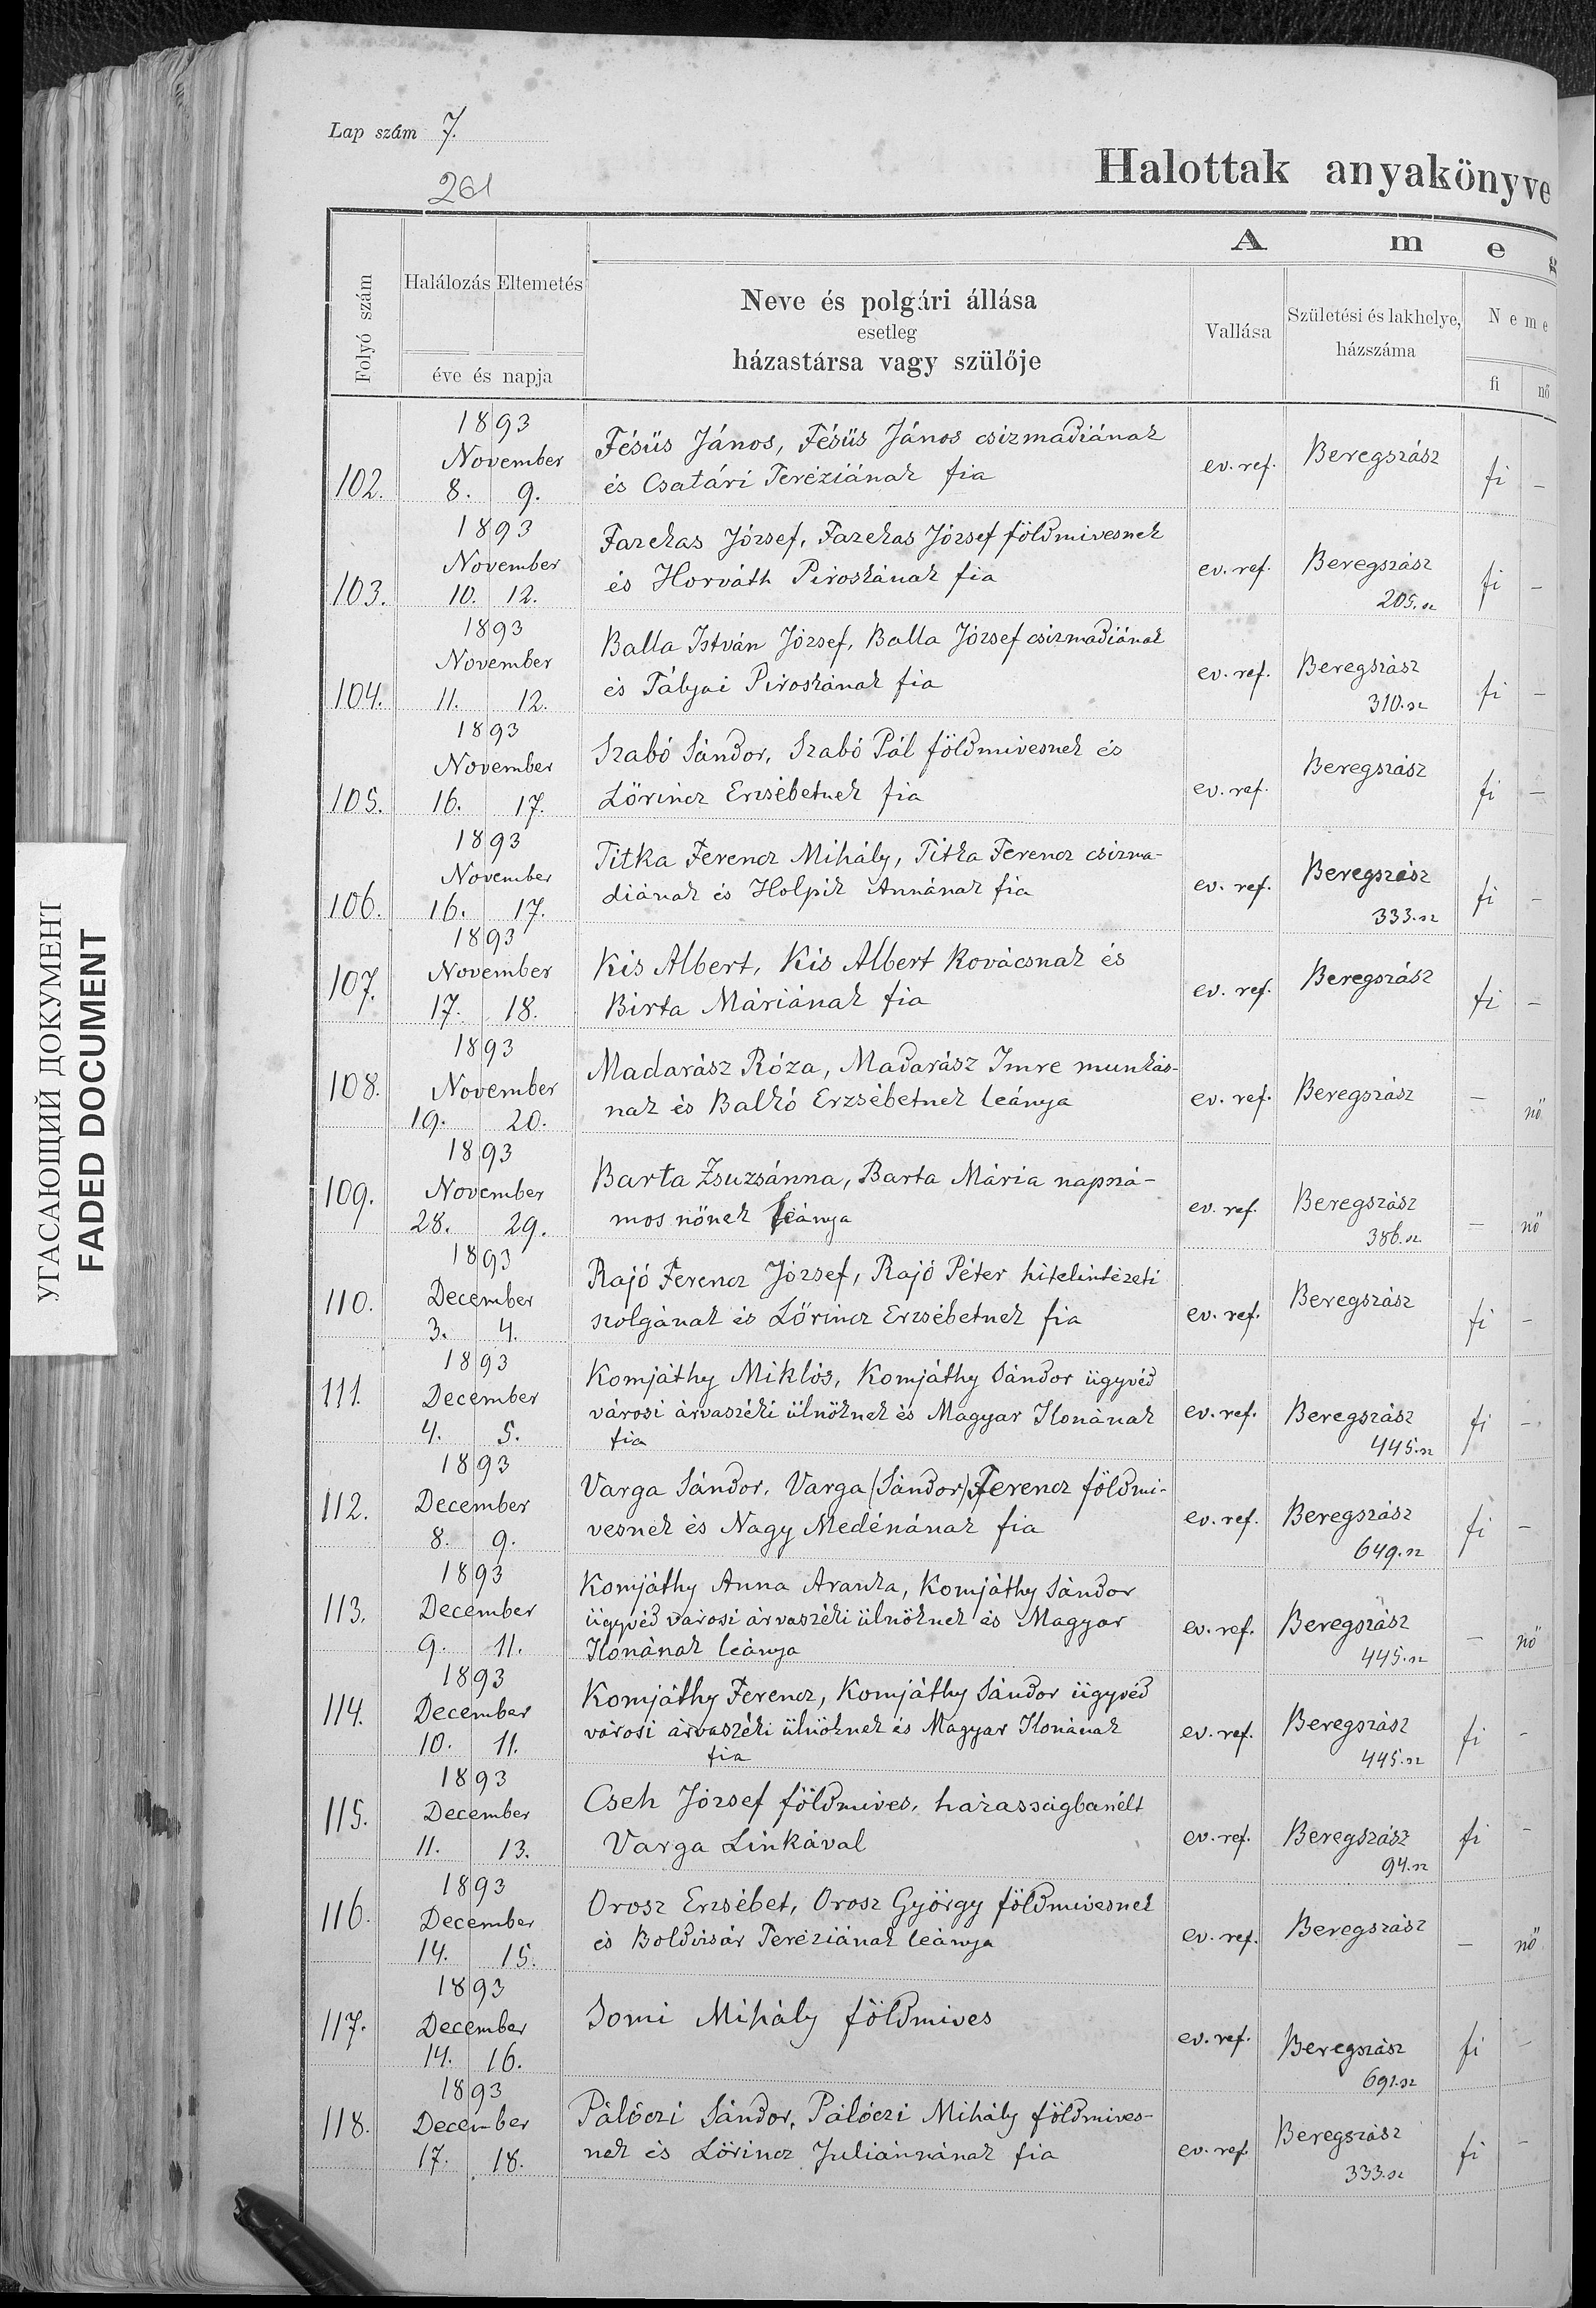 Lap szám 7.
261
Halottak anyakönyve
A m e g
Folyó szám
Halálozás Eltemetés
éve és napja
Neve és polgári állása
esetleg
házastársa vagy szülője
Vallása
Születési és lakhelye,
házszáma
Neme
fi nő
1893
November
102. 8. 9.
Fésüs János, Fésüs János csizmadiának
és Csatári Teréziának fia
ev. ref. Beregszász fi –
1893
November
103. 10. 12.
Fazekas József, Fazekas József földmivesnek
és Horváth Piroskának fia
ev. ref. Beregszász fi –
205. sz
1893
November
104. 11. 12.
Balla István József, Balla József csizmadiának
és Tályai Piroskának fia
ev. ref. Beregszász fi –
310. sz
1893
November
105. 16. 17.
Szabó Sándor, Szabó Pál földmivesnek és
Lőrincz Erzsébetnek fia
ev. ref. Beregszász fi –
1893
November
106. 16. 17.
Titka Ferencz Mihály, Titka Ferencz csizma-
diának és Holpik Annának fia
ev. ref. Beregszász fi –
333. sz
1893
November
107. 17. 18.
Kis Albert, Kis Albert kovácsnak és
Birta Máriának fia
ev. ref. Beregszász fi –
1893
108. November
19. 20.
Madarász Róza, Madarász Imre munkás-
nak és Balkó Erzsébetnek leánya
ev. ref. Beregszász – nő
1893
109. November
28. 29.
Barta Zsuzsánna, Barta Mária napszá-
mos nőnek leánya
ev. ref. Beregszász – nő
386. sz
1893
110. December
3. 4.
Rajó Ferencz József, Rajó Péter hitelintézeti
szolgának és Lőrincz Erzsébetnek fia
ev. ref. Beregszász fi –
1893
111. December
4. 5.
Komjáthy Miklós, Komjáthy Sándor ügyvéd
városi árvaszéki ülnöknek és Magyar Ilonának
fia
ev. ref. Beregszász fi –
445. sz
1893
112. December
8. 9.
Varga Sándor, Varga (Sándor) Ferencz földmi-
vesnek és Nagy Medénának fia
ev. ref. Beregszász fi –
649. sz
1893
113. December
9. 11.
Komjáthy Anna Aranka, Komjáthy Sándor
ügyvéd városi árvaszéki ülnöknek és Magyar
Ilonának leánya
ev. ref. Beregszász – nő
445. sz
1893
114. December
10. 11.
Komjáthy Ferencz, Komjáthy Sándor ügyvéd
városi árvaszéki ülnöknek és Magyar Ilonának
fia
ev. ref. Beregszász fi –
445. sz
1893
115. December
11. 13.
Cseh József földmives, házasságban élt
Varga Linkával
ev. ref. Beregszász fi –
94. sz
1893
116. December
14. 15.
Orosz Erzsébet, Orosz György földmivesnek
és Boldizsár Teréziának leánya
ev. ref. Beregszász – nő
1893
117. December
14. 16.
Somi Mihály földmives
ev. ref. Beregszász fi –
691. sz
1893
118. December
17. 18.
Pálóczi Sándor, Pálóczi Mihály földmives-
nek és Lőrincz Juliánnának fia
ev. ref. Beregszász fi –
333. sz
УГАСАЮЩИЙ ДОКУМЕНТ
FADED DOCUMENT